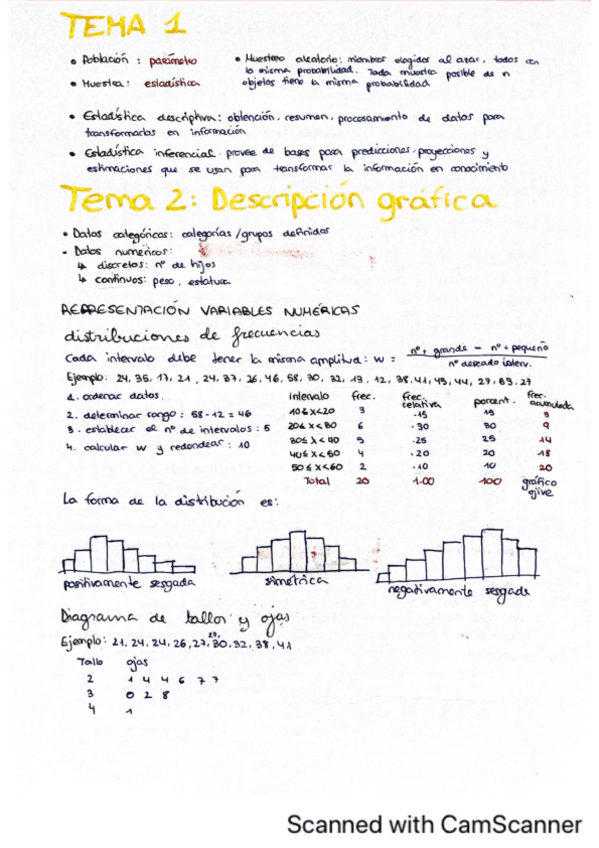 TEMA 1
• Población : parámetro
• Muestra : estadística
• Muestreo aleatorio: miembros elegidos al azar, todos con
la misma probabilidad. Toda muestra posible de n
objetos tiene la misma probabilidad
• Estadística descriptiva: obtención, resumen, procesamiento de datos para
transformarlos en información
• Estadística inferencial. provee de bases para predicciones, proyecciones y
estimaciones que se usan para transformar la información en conocimiento
Tema 2: Descripción gráfica
• Datos categóricos: categorías /grupos definidos
• Datos numéricos:
↳ discretos: nº de hijos
↳ continuos: peso, estatura
REPRESENTACIÓN VARIABLES NUMÉRICAS
distribuciones de frecuencias
Cada intervalo debe tener la misma amplitud: w = nº + grande - nº + pequeño
nº deseado interv.
Ejemplo: 24, 35, 17, 21, 24, 37, 26, 46, 58, 30, 32, 13, 12, 38, 41, 43, 44, 27, 53, 27
1. ordenar datos.
2. determinar rango: 58 - 12 = 46
3. establecer el nº de intervalos: 5
4. calcular w y redondear: 10
intervalo frec. frec. relativa porcent. frec. acumulada
10≤x<20 3 .15 15 3
20≤x<30 6 .30 30 9
30≤x<40 5 .25 25 14
40≤x<50 4 .20 20 18
50≤x<60 2 .10 10 20
Total 20 1.00 100 gráfico
ojive
La forma de la distribución es:
positivamente sesgada simétrica negativamente sesgada
Diagrama de tallos y ojas
Ejemplo: 21, 24, 24, 26, 27, 27, 30, 32, 38, 41
Tallo ojas
2 1 4 4 6 7 7
3 0 2 8
4 1
Scanned with CamScanner